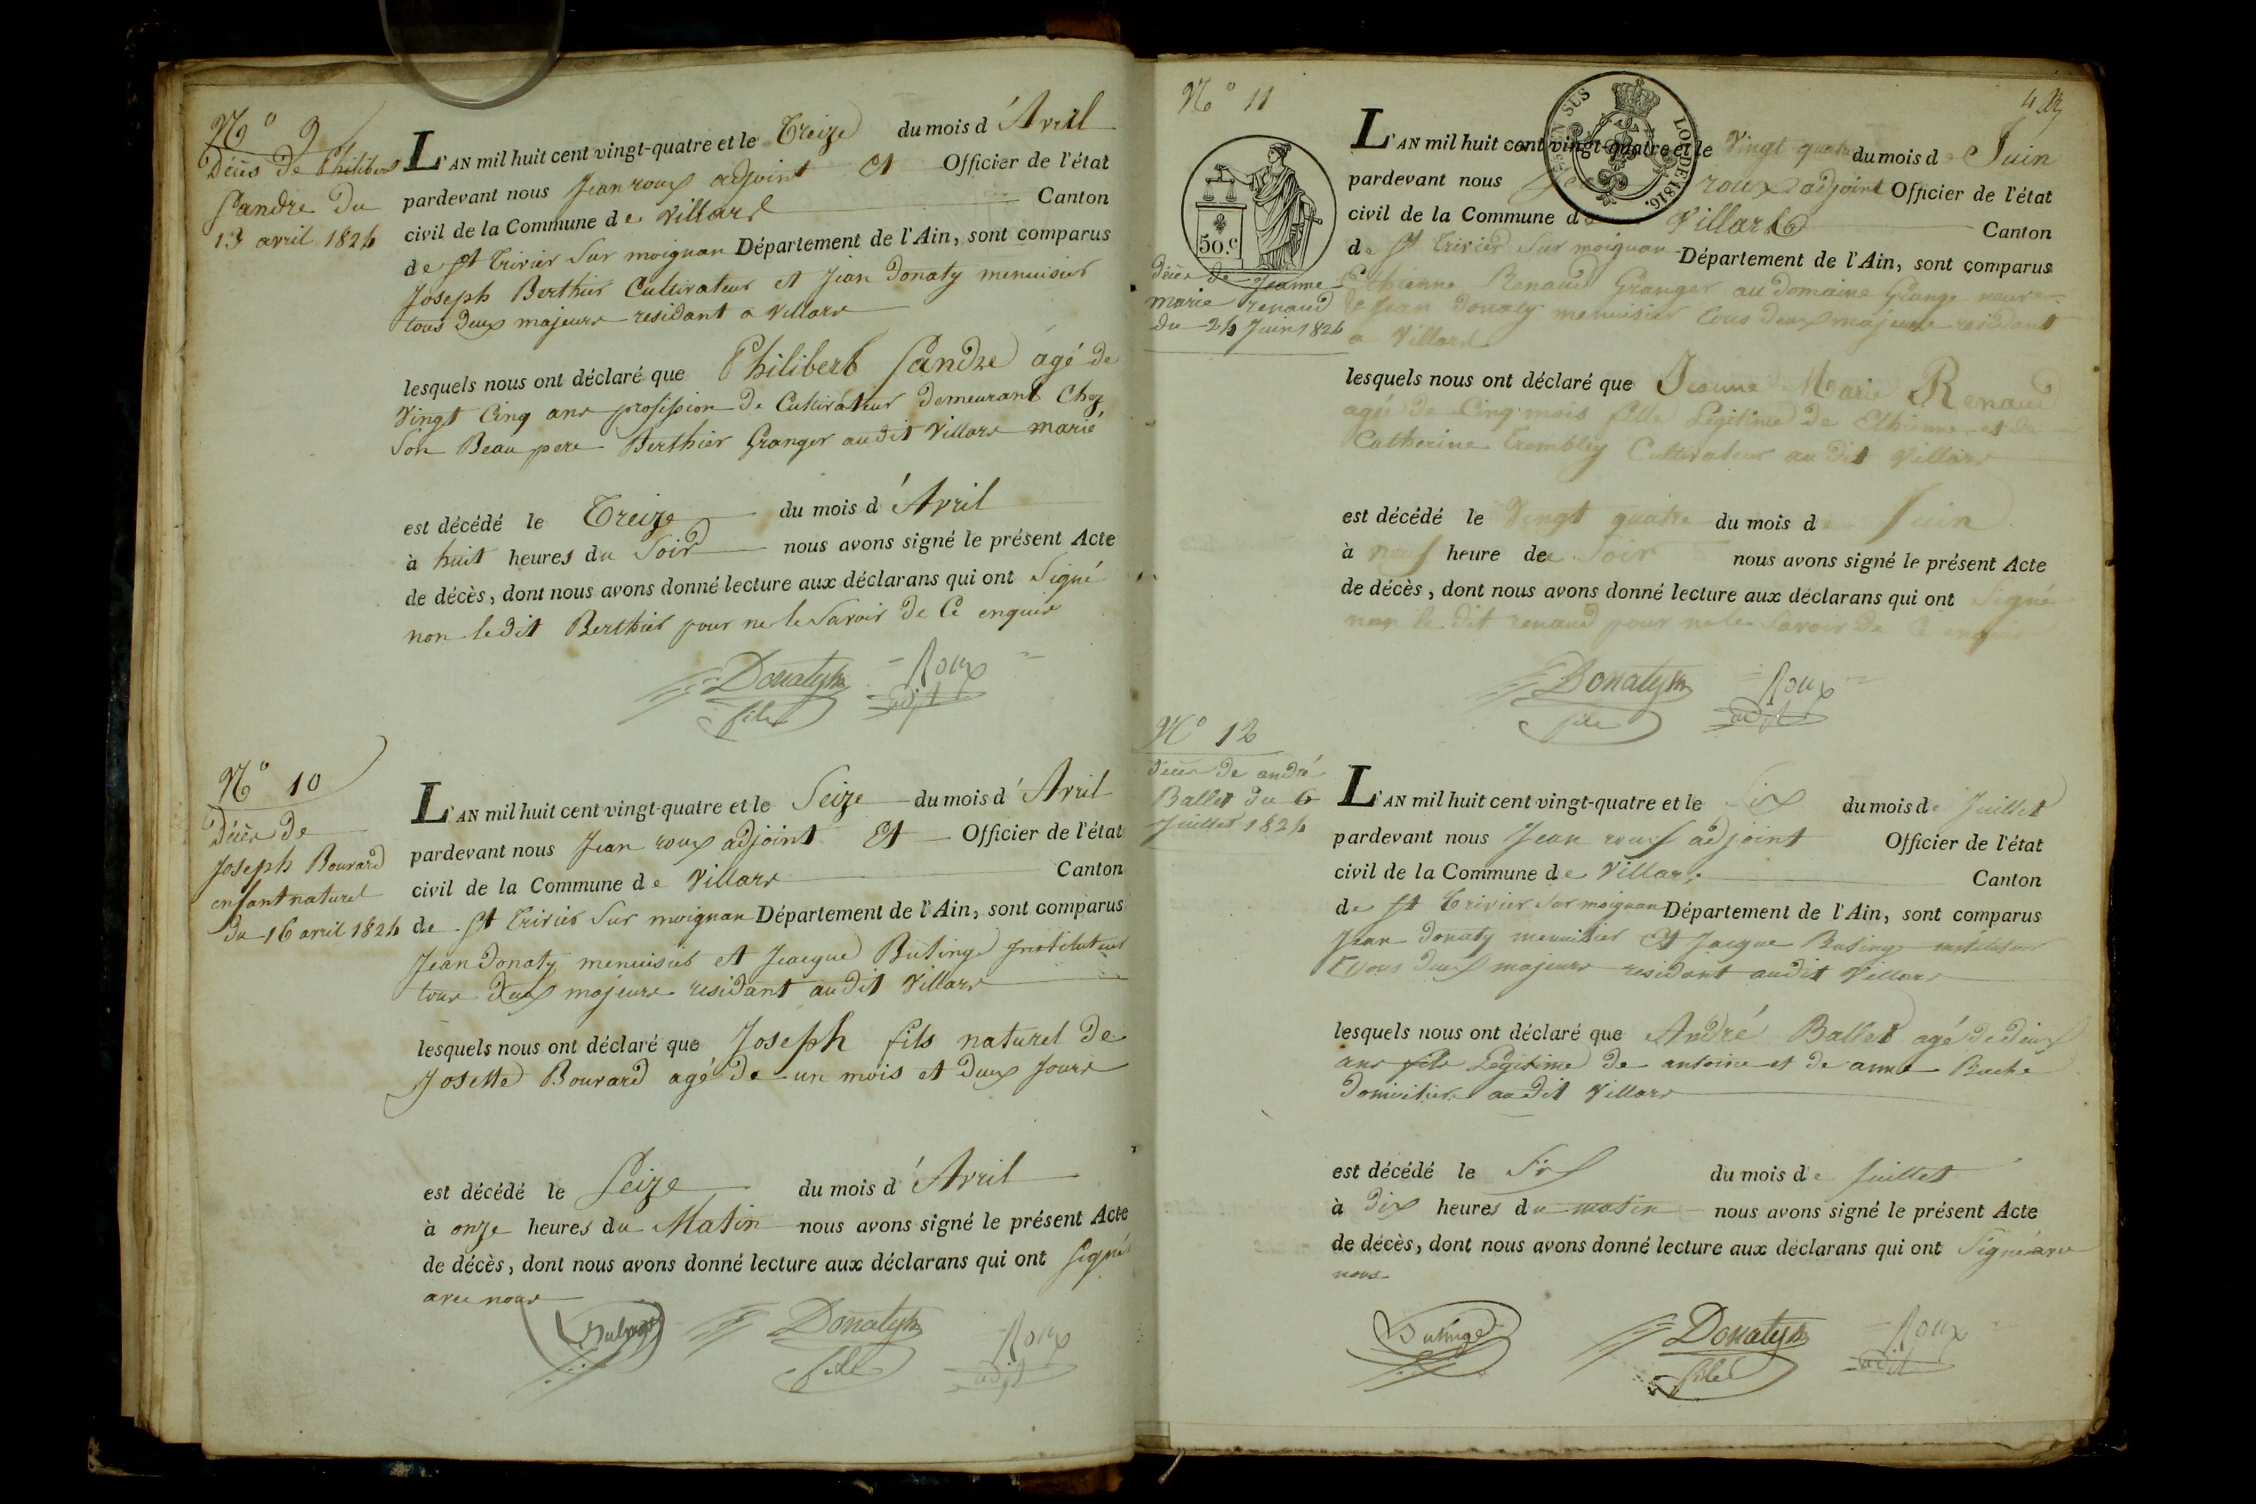 N.o 9
Décès de Philibert
Pandre du
13 avril 1824
L'AN mil huit cent vingt-quatre et le Treize du mois d'Avril
pardevant nous Jean roux adjoint Et Officier de l'état
civil de la Commune de Villars Canton
de St Trivier Sur moignan Département de l'Ain, sont comparus
Joseph Berthier Cultivateur et Jean Donaty menuisier
tous deux majeurs residant a Villars
lesquels nous ont déclaré que Philibert Pandre agé de
Vingt Cinq ans profission de Cultivateur demeurant Chez
Son Beau pere Berthier Granger audit Villars marié
est décédé le Treize du mois d'Avril
à huit heures du Soir nous avons signé le présent Acte
de décès, dont nous avons donné lecture aux déclarans qui ont Signé
non ledit Berthier pour ne le Savoir de Ce enquis
Donaty fils
Roux adjt
N.o 10
Décès de
Joseph Bouvard
enfant naturel
du 16 avril 1824
L'AN mil huit cent vingt-quatre et le Seize du mois d'Avril
pardevant nous Jean roux adjoint Et Officier de l'état
civil de la Commune de Villars Canton
de St Trivier Sur moignan Département de l'Ain, sont comparus
Jean Donaty menuisier et Jacque Butinge Instituteur
tous deux majeurs residant audit Villars
lesquels nous ont déclaré que Joseph fils naturel de
Josette Bouvard agé de un mois et deux Jours
est décédé le Seize du mois d'Avril
à onze heures du Matin nous avons signé le présent Acte
de décès, dont nous avons donné lecture aux déclarans qui ont Signé
avec nous
Butinge
Donaty fils
Roux adjt
N.o 11
50.c
EN SUS
LOI DE 1816.
4
Décès de Jeanne
marie renaud
du 24 Juin 1824
L'AN mil huit cent vingt-quatre et le Vingt quatre du mois de Juin
pardevant nous roux adjoint Officier de l'état
civil de la Commune de Villars Canton
de St Trivier Sur moignan Département de l'Ain, sont comparus
Ethienne Renaud Granger au domaine Grange neuve
et Jean Donaty menuisier tous deux majeurs residant
a Villars
lesquels nous ont déclaré que Jeanne Marie Renaud
agée de Cinq mois fille Légitime de Ethienne et de
Catherine Trembley Cultivateur audit Villars
est décédé le Vingt quatre du mois de Juin
à neuf heure de Soir nous avons signé le présent Acte
de décès, dont nous avons donné lecture aux déclarans qui ont Signé
non le dit renaud pour ne le Savoir de Ce enquis
Donaty fils
Roux adjt
N.o 12
Décès de andré
Ballet du 6
Juillet 1824
L'AN mil huit cent vingt-quatre et le Six du mois de Juillet
pardevant nous Jean roux adjoint Officier de l'état
civil de la Commune de Villars Canton
de St Trivier Sur moignan Département de l'Ain, sont comparus
Jean Donaty menuisier Et Jacque Butinge instituteur
Tous deux majeurs residant audit Villars
lesquels nous ont déclaré que André Ballet agé de deux
ans fils Légitime de antoine et de anne Buche
Domicilier audit Villars
est décédé le Six du mois de Juillet
à dix heures du matin nous avons signé le présent Acte
de décès, dont nous avons donné lecture aux déclarans qui ont Signé avec
nous
Butinge
Donaty fils
Roux adjt